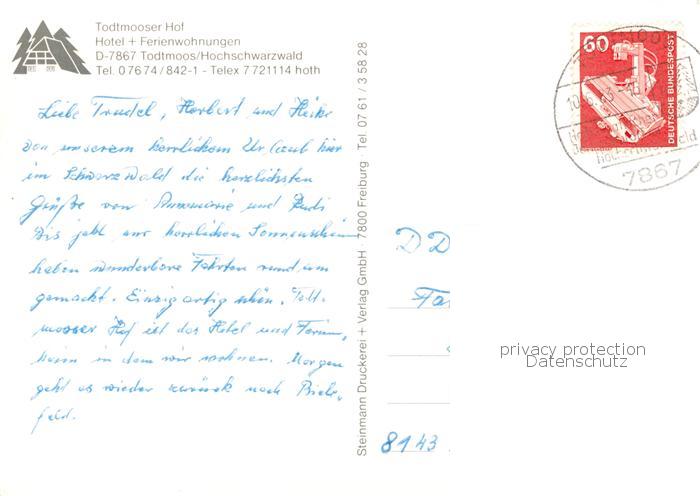 Todtmooser Hof
Hotel + Ferienwohnungen
D-7867 Todtmoos/Hochschwarzwald
Tel. 0 76 74 / 842-1 - Telex 7 721 114 hoth
Liebe Trudel, Herbert und Heike
von unserem herrlichen Urlaub hier
im Schwarzwald die herzlichsten
Grüße von Annemarie und Rudi
Bis jetzt nur herrlichen Sonnenschein
haben wunderbare Fahrten rund um
gemacht. Einzigartig schön. Todt-
mooser Hof ist das Hotel und Ferien-
heim in dem wir wohnen. Morgen
geht es wieder zurück nach Biele-
feld.
Steinmann Druckerei + Verlag GmbH · 7800 Freiburg · Tel. 07 61 / 3 58 28
60
DEUTSCHE BUNDESPOST
7867
DD
8143
privacy protection
Datenschutz